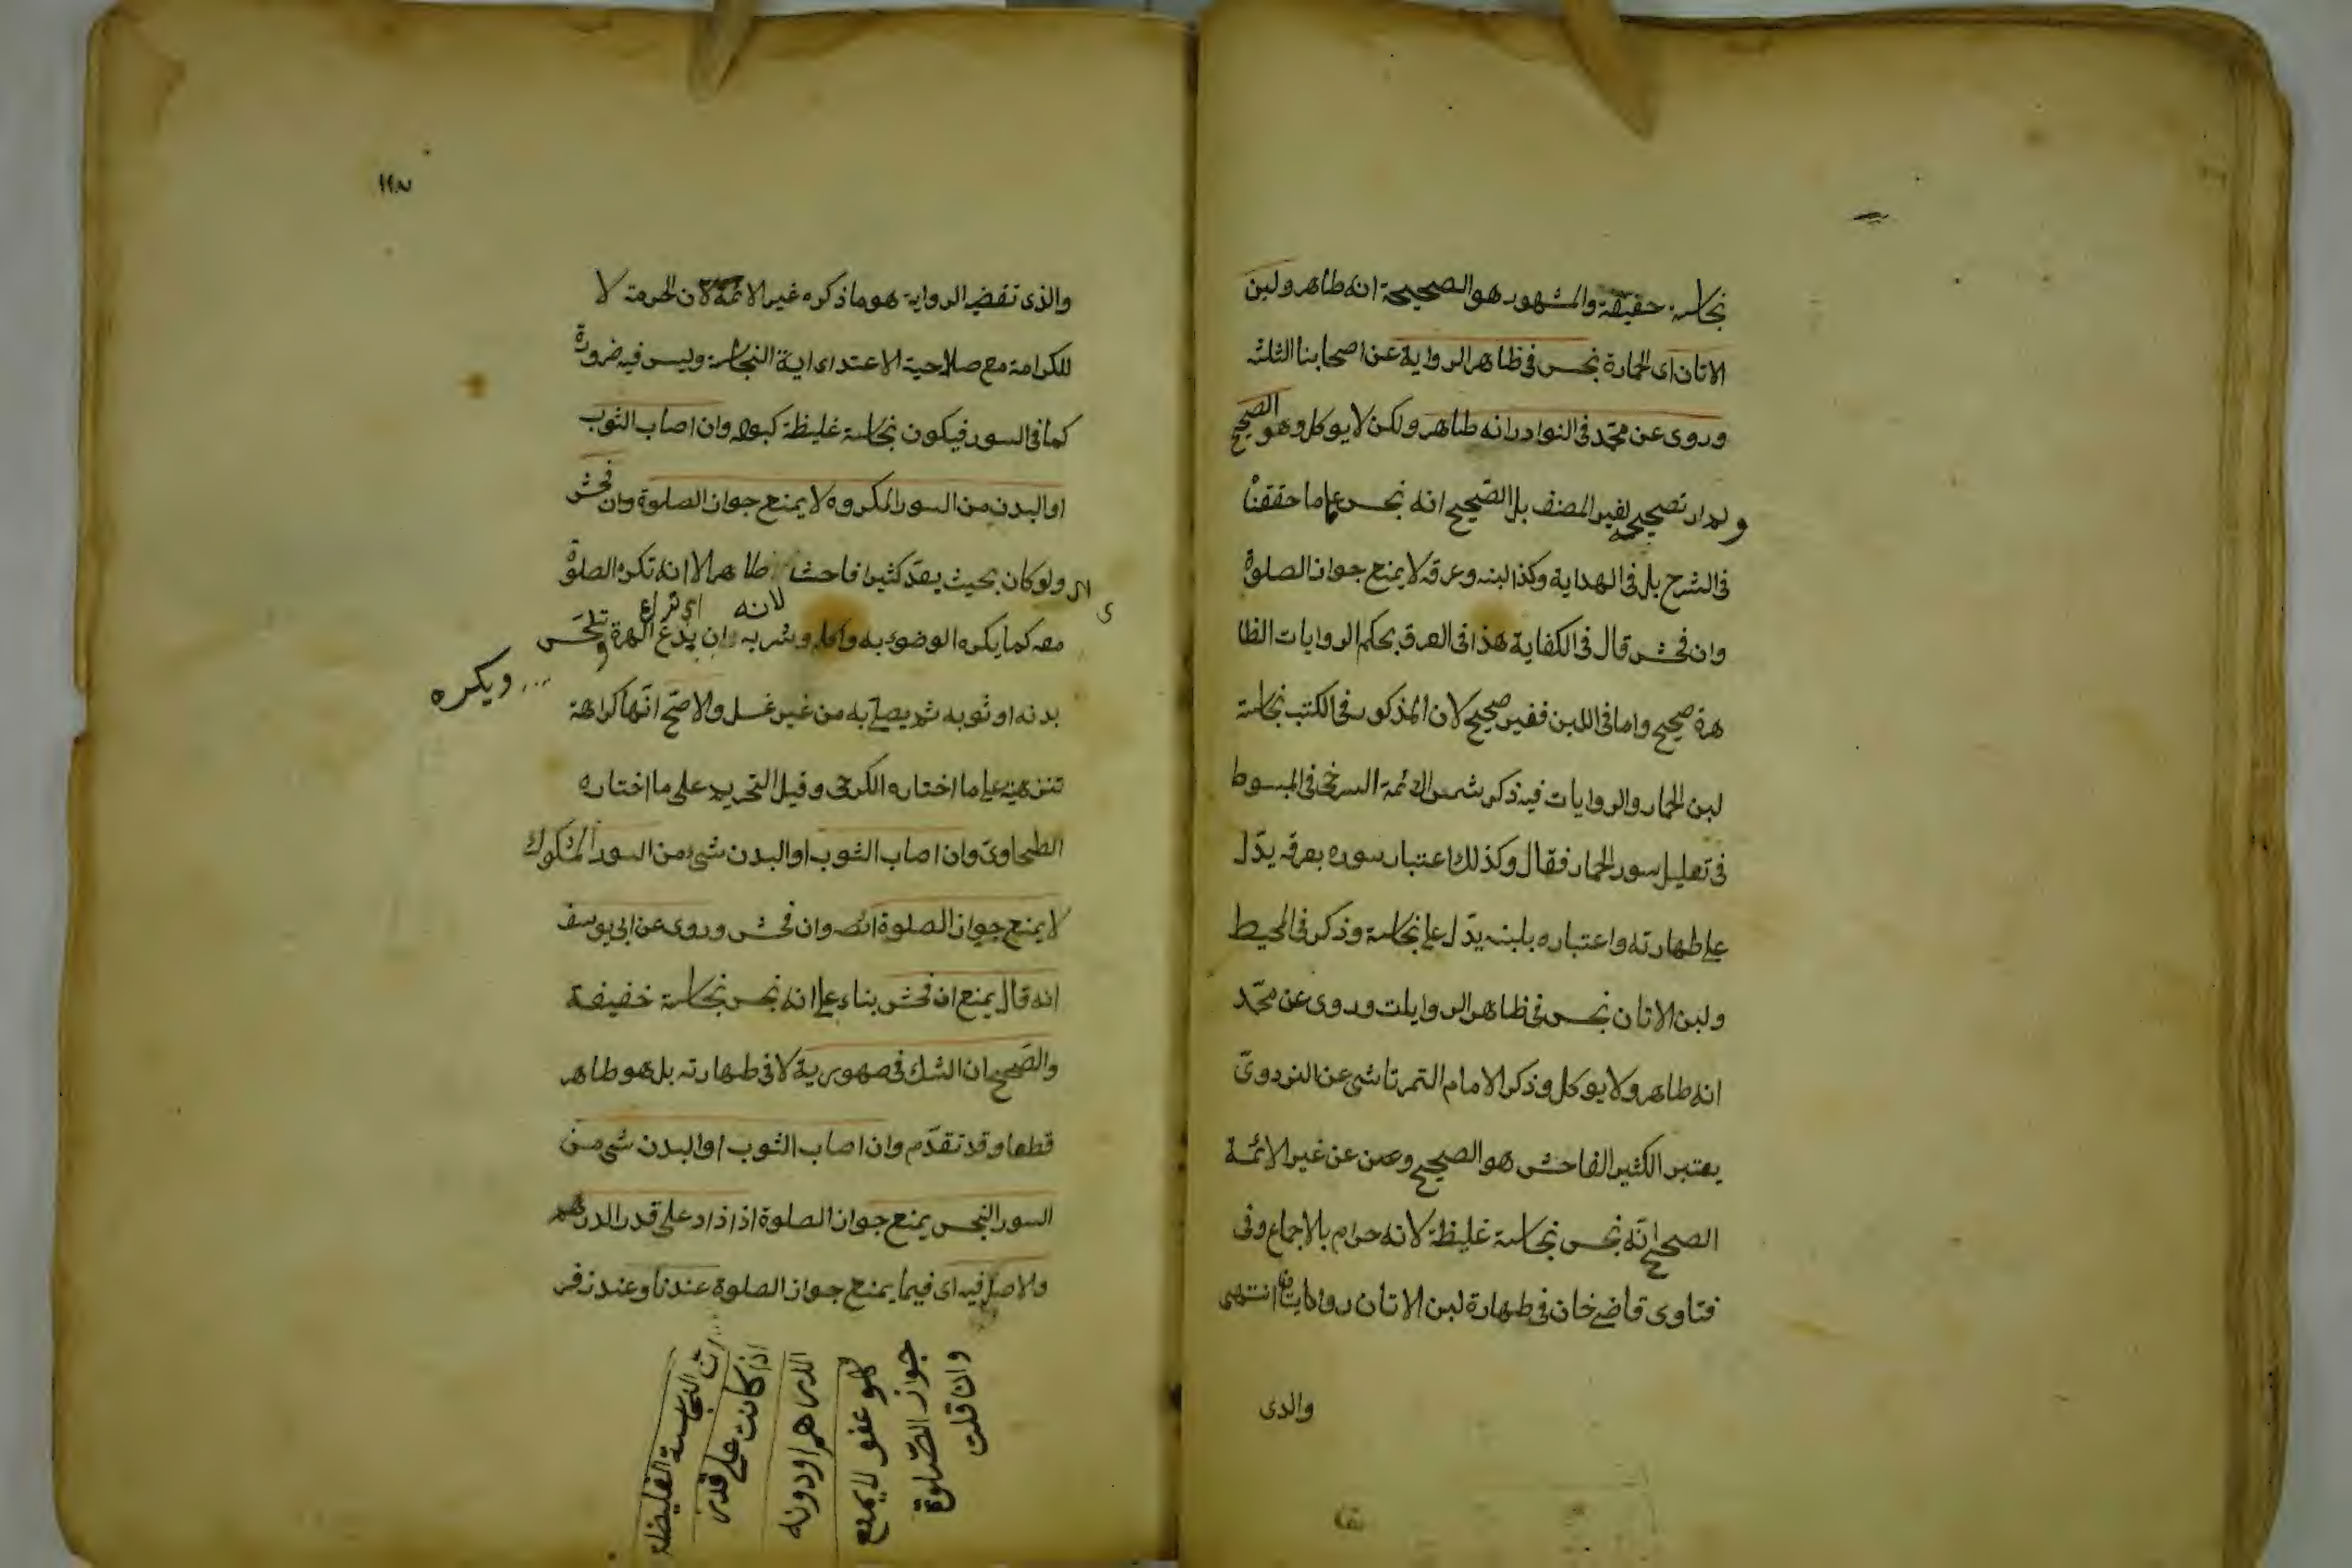 نجاسة حقيقة والمشهور هو الصحيحة انه طاهر ولبن
الاتان اى الحمارة نجس فى ظاهر الرواية عن اصحابنا الثلثة
وروى عن محمّد فى النوادر انه طاهر ولكن لا يوكل وهو الصحيح
تصحيحه لغير المصنف بل الصّحيح انه نجس على ما حققنا
فى الشرح بل فى الهداية وكذا لبنه وعرقه لا يمنع جواز الصلوة
وان فحش قال فى الكفاية هذا فى العرق بحكم الروايات الظا
هرة صحيح واما فى اللبن فغير صحيح لان المذكور فى الكتب نجاسة
لبن الحمار والروايات فيه ذكر شمس الائمة السرخسى فى المبسوط
فى تعليل سور الحمار فقال وكذلك اعتبار سوره بعرقه يدّل
على طهارته واعتباره بلبنه يدّل على نجاسة وذكر فى المحيط
ولبن الاتان نجس فى ظاهر الروايات وروى عن محمّد
انه طاهر ولا يوكل وذكر الامام التمرتاشى عن البزدوىّ
يعتبر الكثير الفاحش هو الصحيح وعن عن غير الائمّة
الصحيح انّه نجس نجاسة غليظة لانه حرام بالاجماع وفى
فتاوى قاضى خان فى طهارة لبن الاتان روايتان انتهى
والذى
١١٨
والذى تقضى الرواية هو ما ذكره غير الائمّة لان الحرمة لا
للكرامة مع صلاحية الاعتداى اية النجاسة وليس فيه ضرورة
كما فى السور فيكون نجاسة غليظة كبوله وان اصاب الثوب
او البدن من السور المكروه لا يمنع جواز الصلوة وان فحش
اى ولو كان بحيث يعدّ كثيرا فاحشا طاهر الا انه تكره الصلوة
لانه
معه كما يكره الوضوء به واكله وشربه وان يدع الهرة تلحس
ويكره
بدنه او ثوبه ثم يصلى به من غير غسل والاصّح انّها كراهة
تنزهية على ما اختاره الكرخى وقيل التحريم على ما اختاره
الطحاوىّ وان اصاب الثوب او البدن شىء من السور المشكوك
لا يمنع جواز الصلوة ايضه وان فحش وروى عن ابى يوسف
انه قال يمنع ان فحش بناء على انه نجس نجاسة خفيفة
والصّحيح ان الشك فى طهورية لا فى طهارته بل هو طاهر
قطعا وقد تقدّم وان اصاب الثوب او البدن شىء من
السور النجس يمنع جواز الصلوة اذا زاد على قدر الدرهم
والاصل فيه اى فيما يمنع جواز الصلوة عندنا وعند زفر
النجاسة الغليظة
اذا كانت على قدر
الدرهم او دونه
فهو عفو لا يمنع
جواز الصّلوة
وان قلت